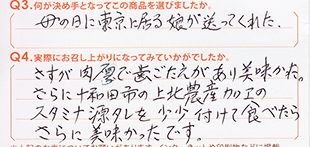 Q3.何が決め手となってこの商品を選びましたか。
母の日に東京に居る娘が送ってくれた.
Q4.実際にお召し上がりになってみていかがでしたか。
さすが肉厚で歯ごたえがあり美味かった。
さらに十和田市の上北農産加工の
スタミナ源タレを少々付けて食べたら
さらに美味かったです。